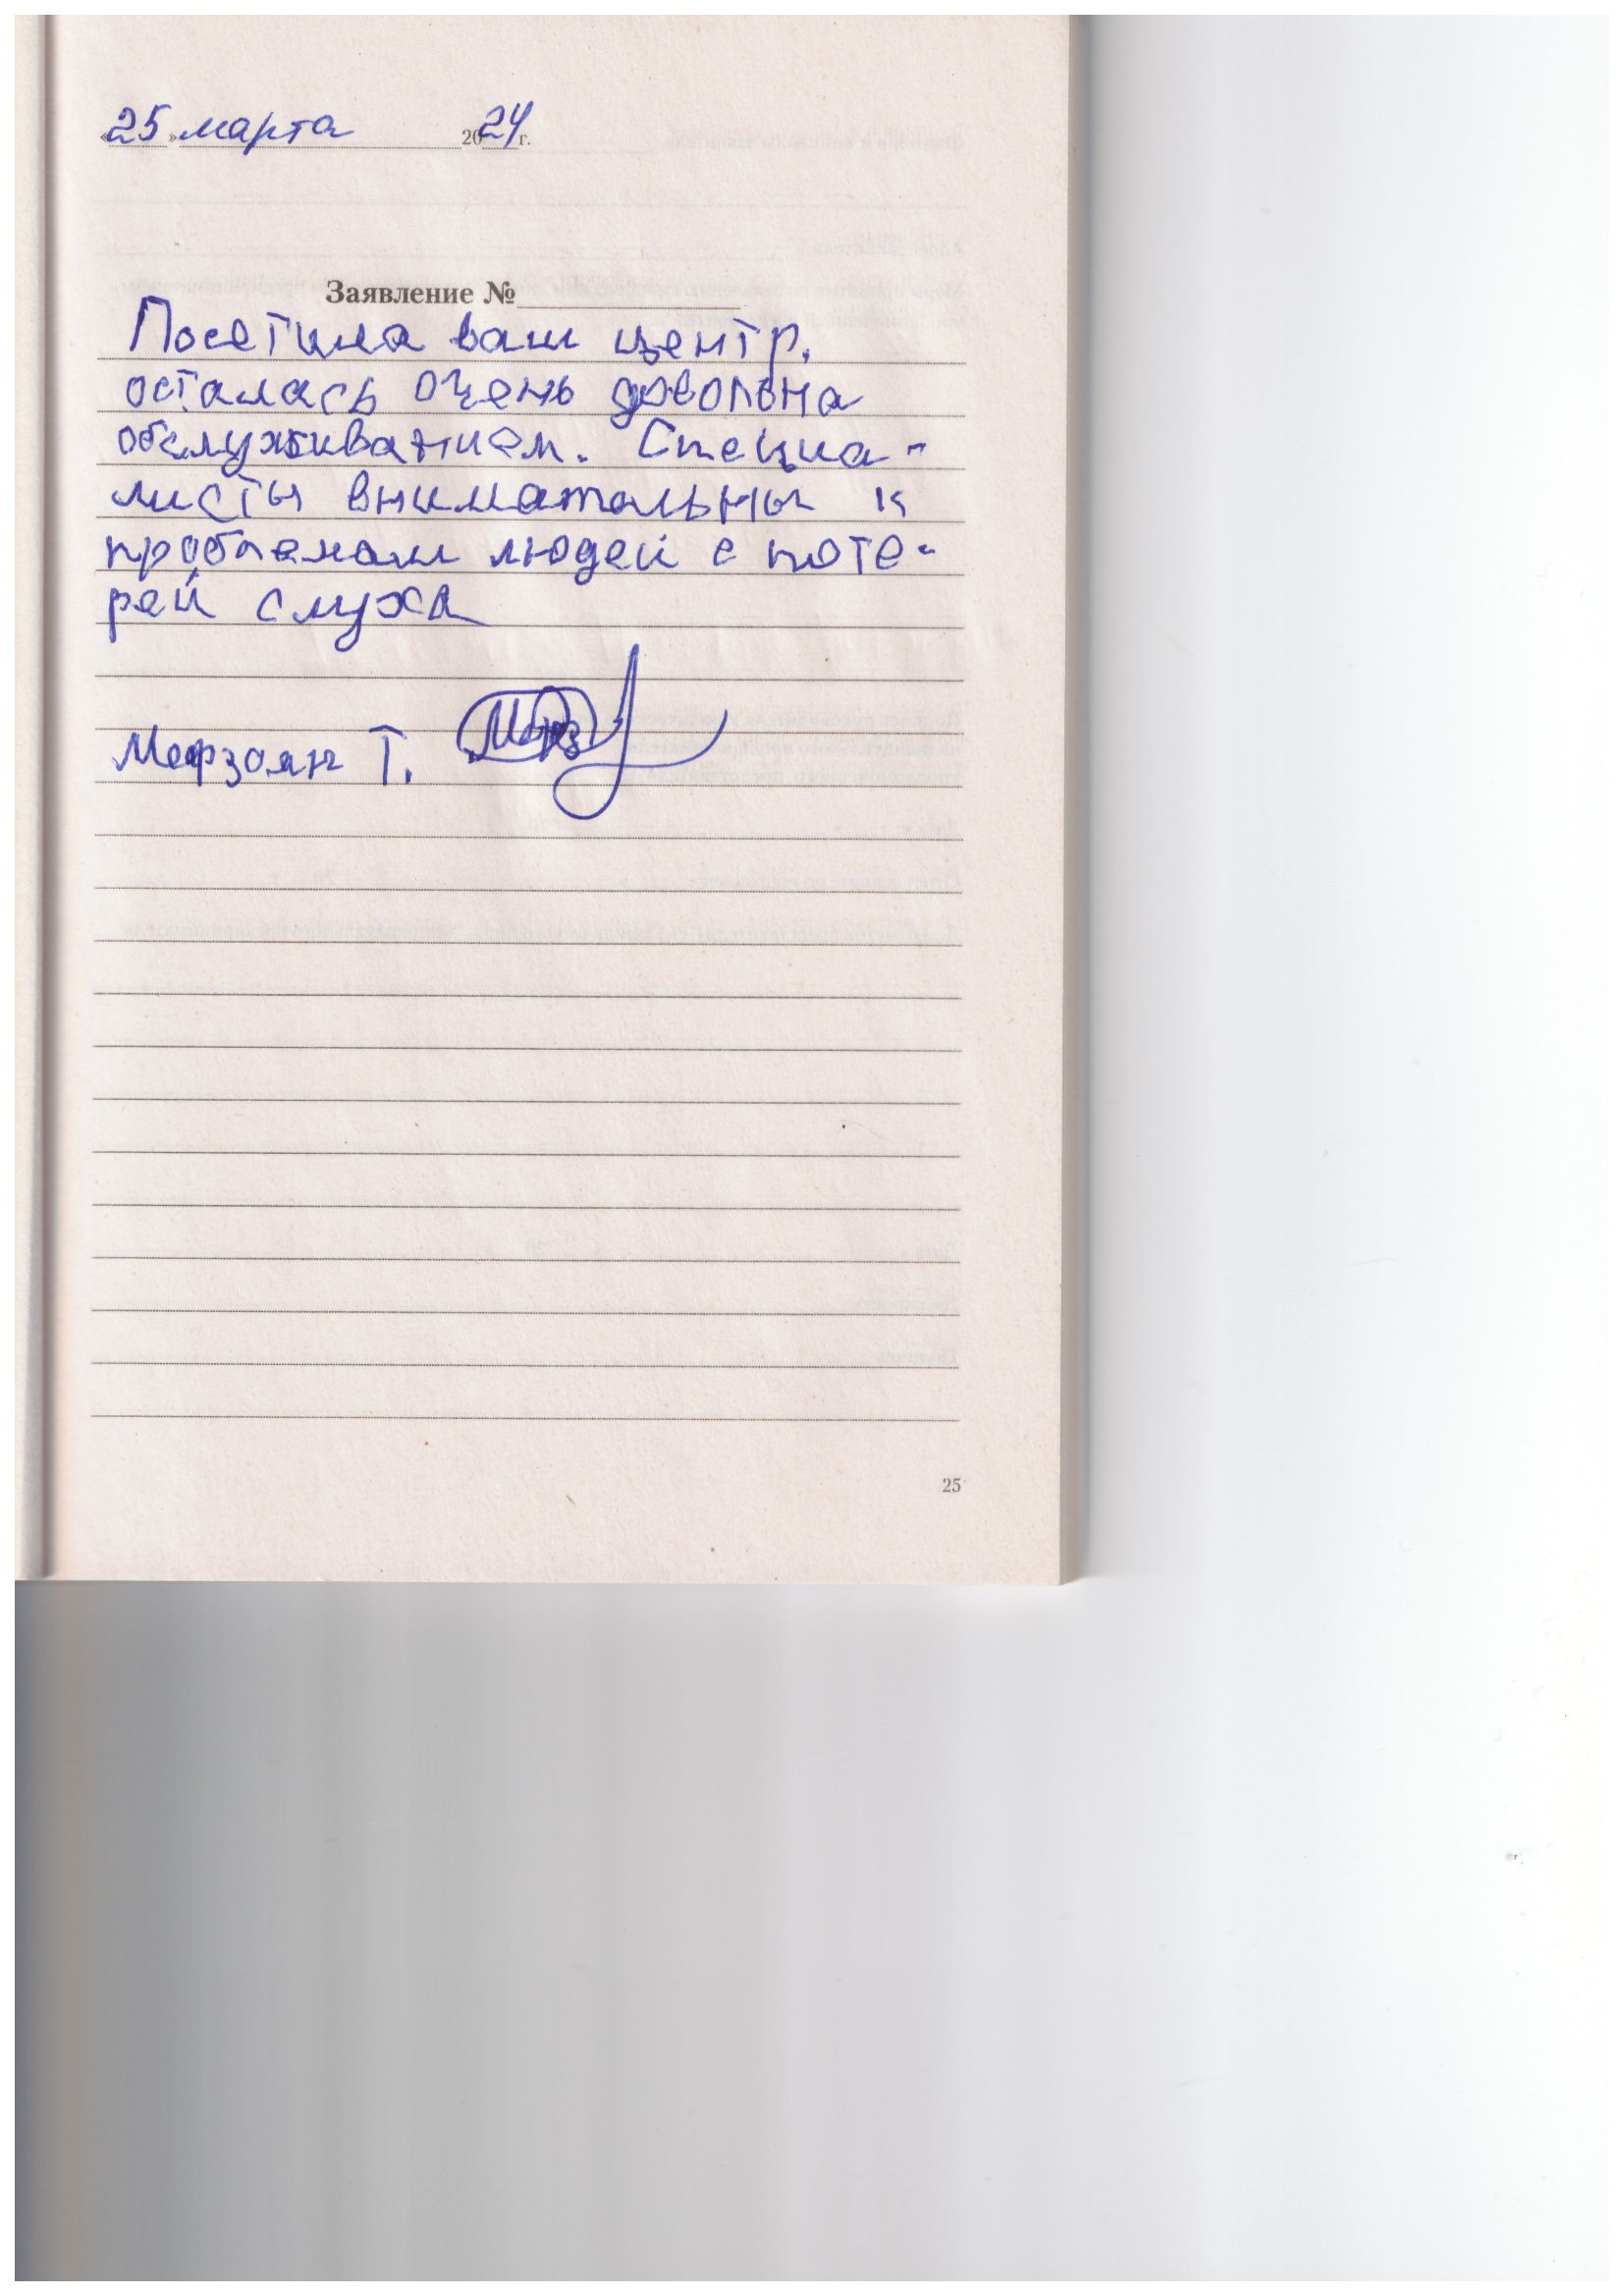 «25» марта 2024 г.
Заявление №
Посетила ваш центр.
осталась очень довольна
обслуживанием. Специа-
листы внимательны к
проблемам людей с поте-
рей слуха
Мефзоян Т.
25